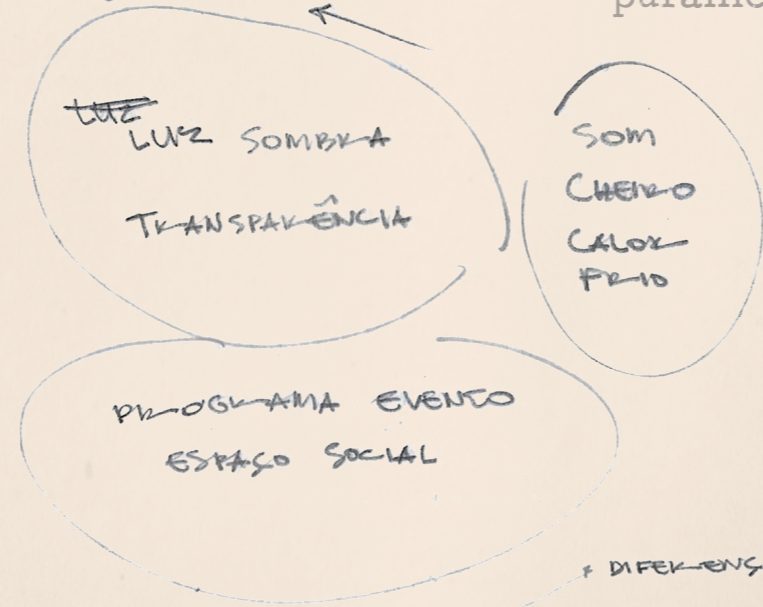 LUZ
LUZ SOMBRA
TRANSPARÊNCIA
SOM
CHEIRO
CALOR
FRIO
PROGRAMA EVENTO
ESPAÇO SOCIAL